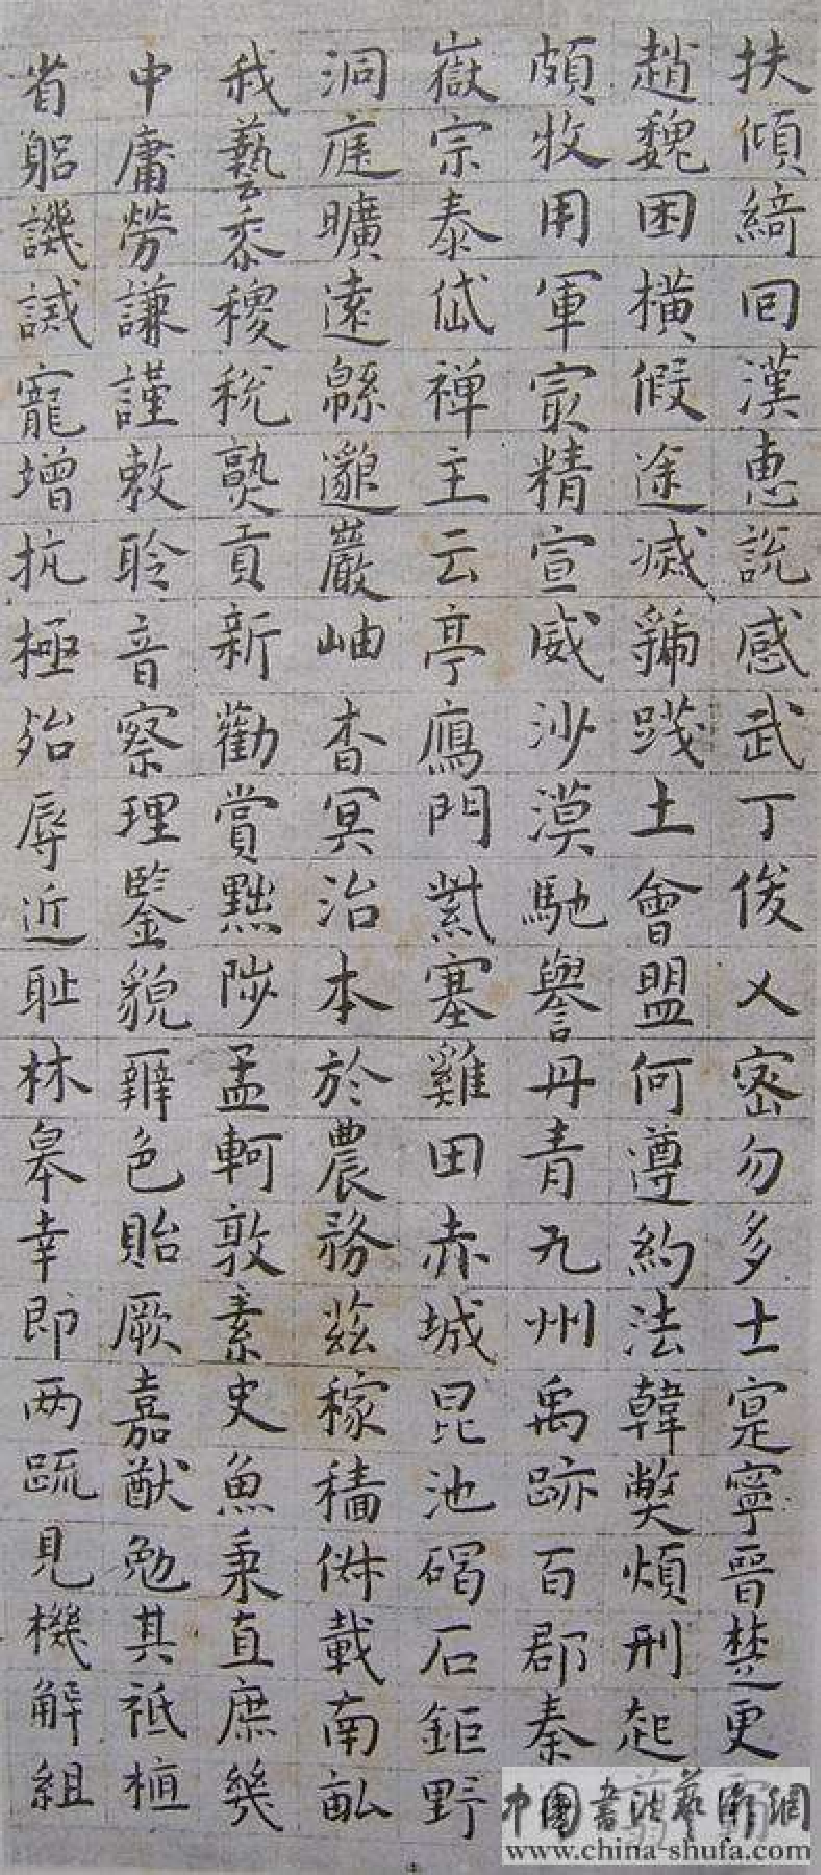 扶傾綺回漢惠説感武丁俊乂密勿多士寔寧晉楚更霸
趙魏困橫假途滅虢踐土會盟何遵約法韓弊煩刑起翦
頗牧用軍冣精宣威沙漠馳譽丹青九州禹跡百郡秦
嶽宗泰岱禪主云亭鴈門紫塞雞田赤城昆池碣石鉅野
洞庭曠遠緜邈巖岫杳冥治本於農務茲稼穡俶載南畝
我藝黍稷稅熟貢新勸賞黜陟孟軻敦素史魚秉直庶幾
中庸勞謙謹敕聆音察理鑒貌辨色貽厥嘉猷勉其祗植
省躬譏誡寵增抗極殆辱近耻林皋幸即两疏見機解組
中國書法藝術網
www.china-shufa.com